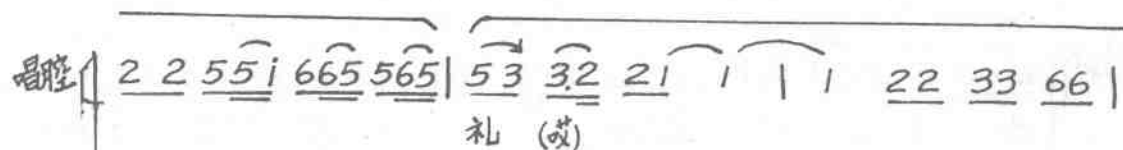 唱腔 2 2 5 5 i 6 6 5 5 6 5 | 5 3 3. 2 2 1 1 | 1 2 2 3 3 6 6 |
礼 (哎)